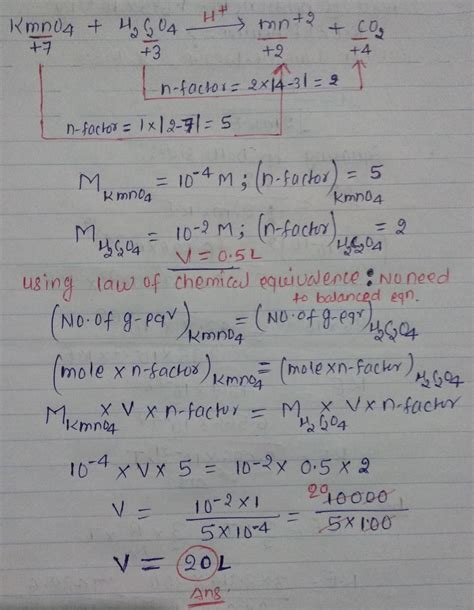 KmnO4 + H2C2O4 —H+→ mn+2 + CO2
+7 +3 +2 +4
n-factor = 2×|4-3| = 2
n-factor = 1×|2-7| = 5
MKmnO4 = 10-4 M ; (n-factor)KmnO4 = 5
MH2C2O4 = 10-2 M ; (n-factor)H2C2O4 = 2
V = 0.5L
using law of chemical equivalence : No need
to balanced eqn.
(NO. of g-eqv)KmnO4 = (NO. of g-eqv)H2C2O4
(mole x n-factor)KmnO4 = (mole x n-factor)H2C2O4
MKmnO4 x V x n-factor = MH2C2O4 x V x n-factor
10-4 x V x 5 = 10-2 x 0.5 x 2
V = 10-2 x 1 / 5 x 10-4 = 20 10000 / 5 x 100
V = 20 L
Ans